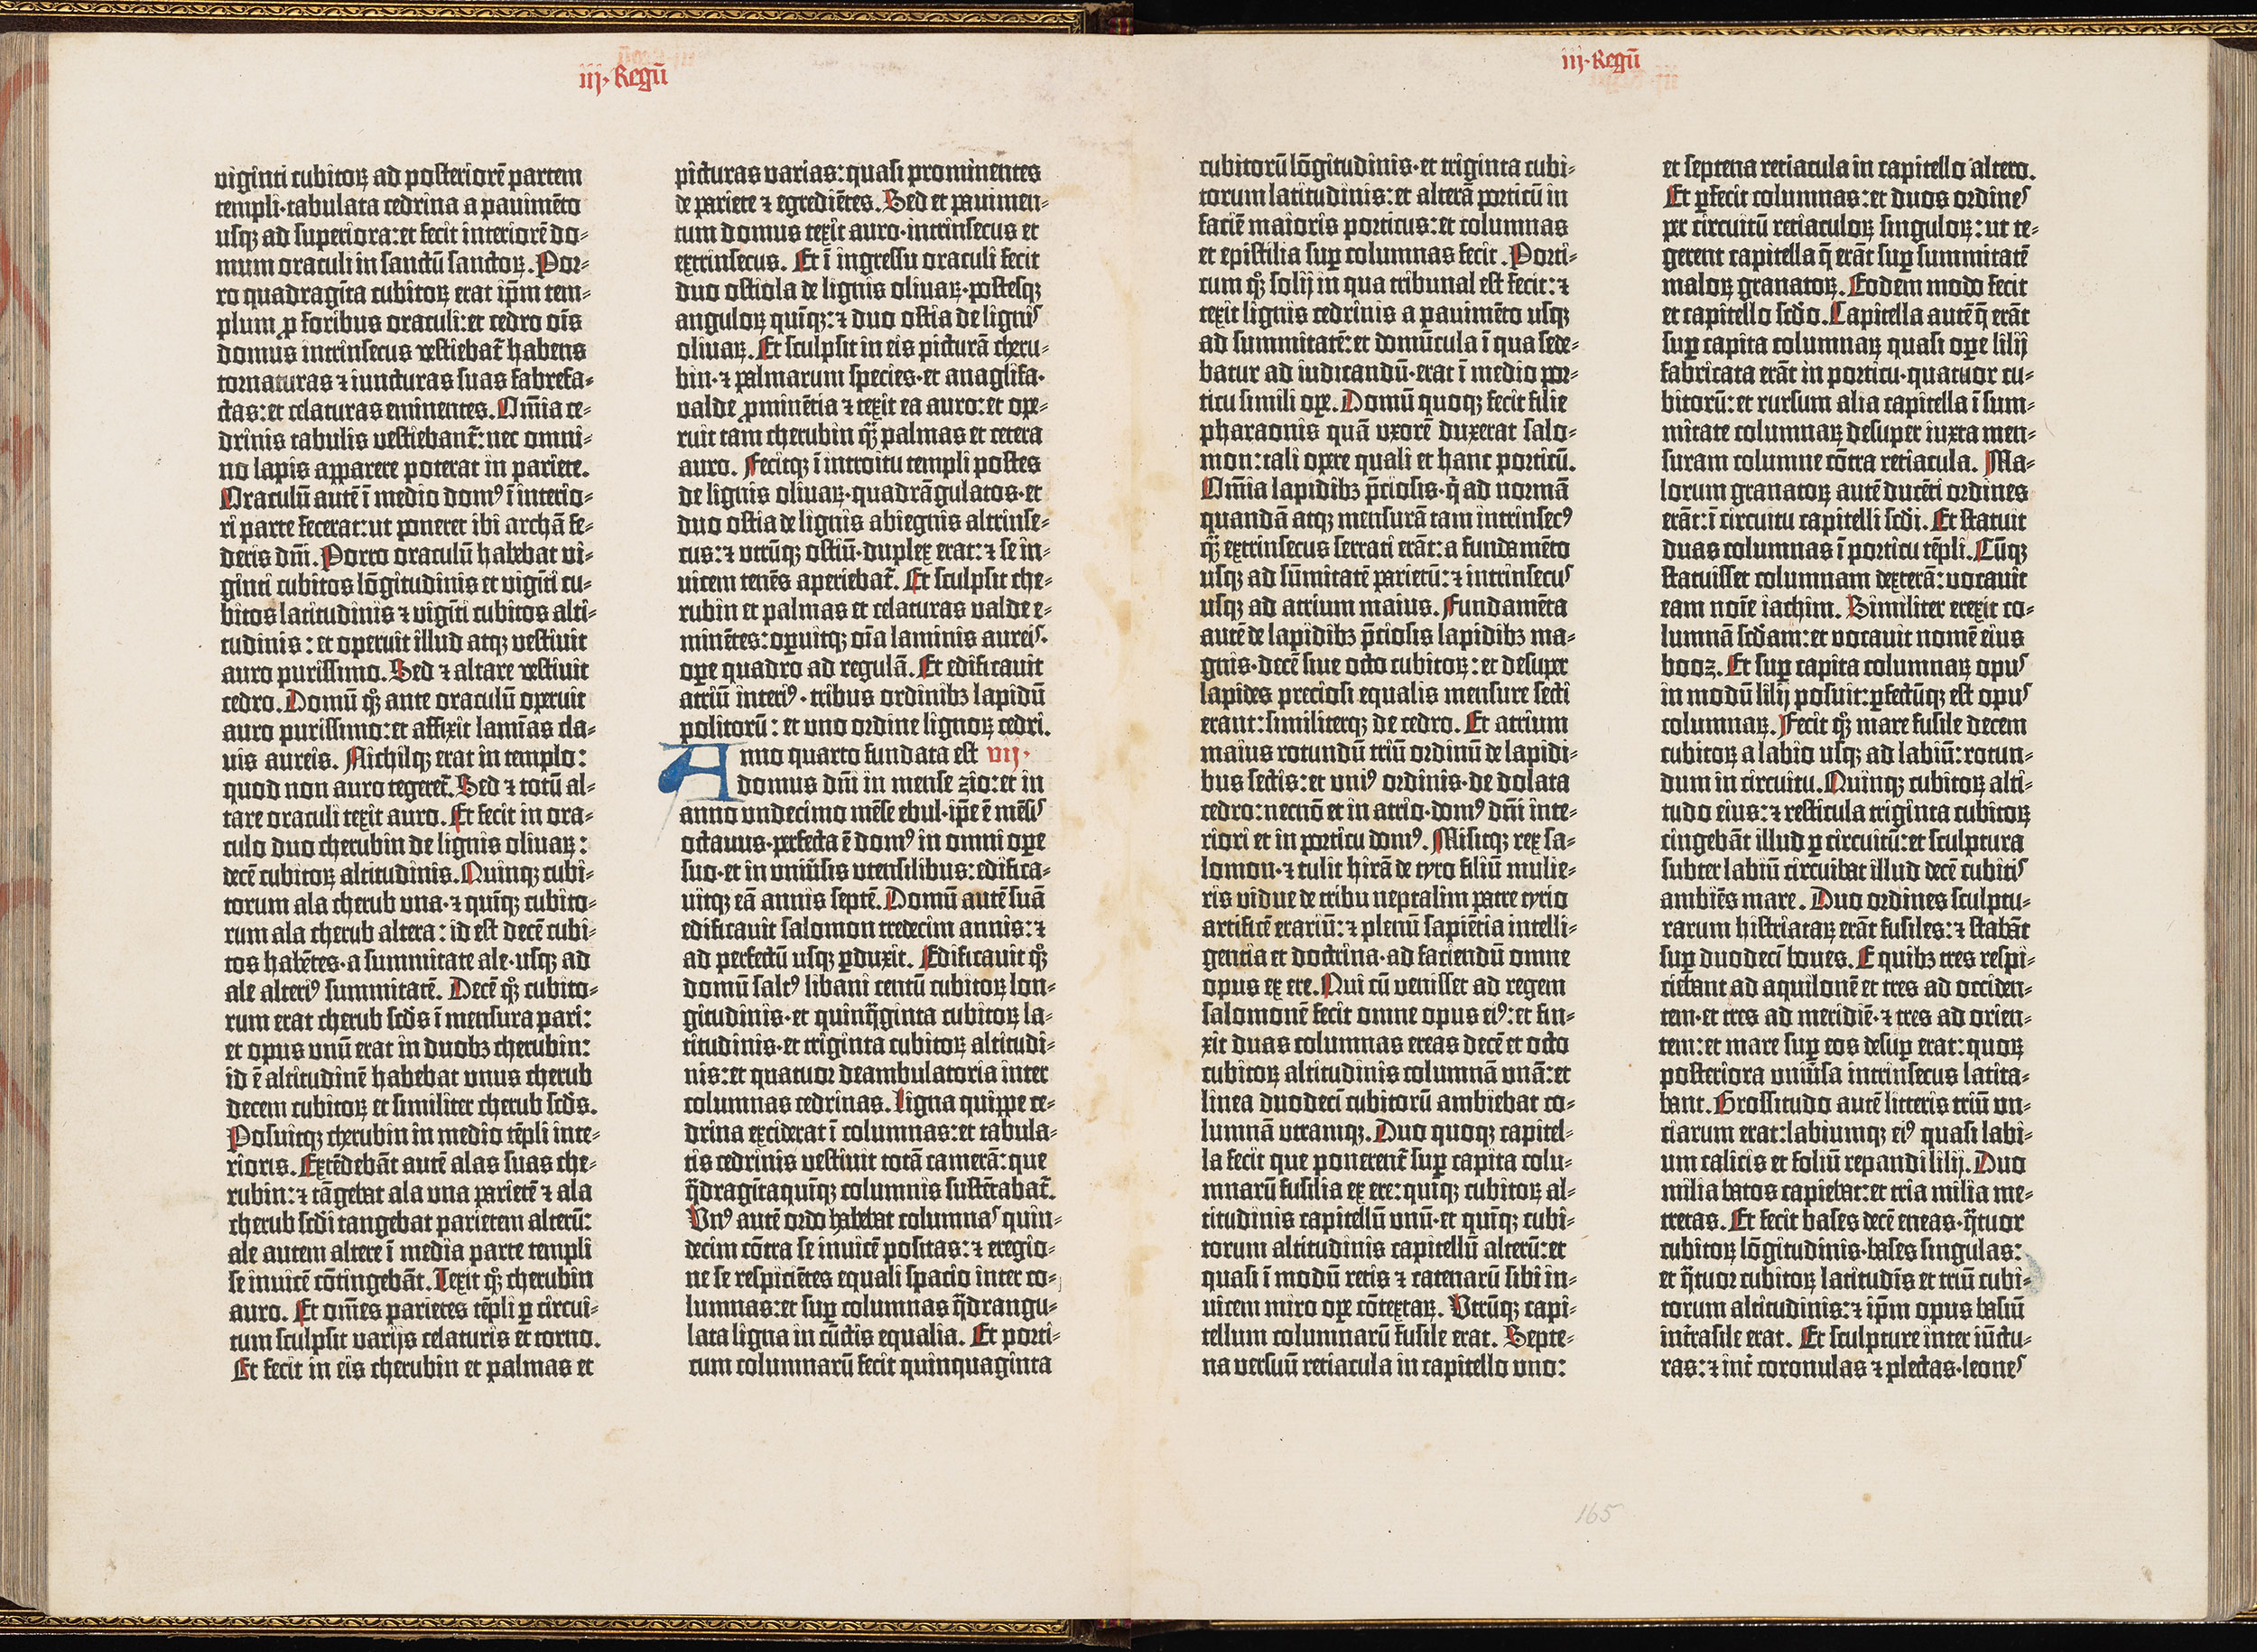 iij. Regū
viginti cubitoꝝ ad posteriorē partem
templi·tabulata cedrina a pauimēto
usqꝫ ad superiora:et fecit interiorē do-
mum oraculi in sanctū sanctoꝝ. Por-
ro quadragīta cubitoꝝ erat ip̄m tem-
plum ꝓ foribus oraculi:et cedro oīs
domus intrinsecus vestiebat̄ habens
tornaturas ⁊ iuncturas suas fabrefa-
ctas:et celaturas eminentes. Om̄ia ce-
drinis tabulis vestiebant̄:nec omni-
no lapis apparere poterat in pariete.
Oraculū autē ī medio domꝰ ī interio-
ri parte fecerat:ut poneret ibi archā fe-
deris dn̄i. Porro oraculū habebat vi-
ginti cubitos lōgitudinis et vigīti cu-
bitos latitudinis ⁊ vigīti cubitos alti-
tudinis: et operuit illud atqꝫ vestiuit
auro purissimo. Sed ⁊ altare vestiuit
cedro. Domū qꝫ ante oraculū operuit
auro purissimo:et affixit lamīas cla-
uis aureis. Nichilqꝫ erat in templo:
quod non auro tegeret̄. Sed ⁊ totū al-
tare oraculi texit auro. Et fecit in ora-
culo duo cherubin de lignis oliuaꝝ:
decē cubitoꝝ altitudinis. Quinqꝫ cubi-
torum ala cherub vna·⁊ quīqꝫ cubito-
rum ala cherub altera: id est decē cubi-
tos habētes·a summitate ale·usqꝫ ad
ale alteriꝰ summitatē. Decē qꝫ cubito-
rum erat cherub scd̄s ī mensura pari:
et opus vnū erat in duobꝫ cherubin:
id ē altitudinē habebat vnus cherub
decem cubitoꝝ et similiter cherub scd̄s.
Posuitqꝫ cherubin in medio tēpli inte-
rioris. Extēdebāt autē alas suas che-
rubin:⁊ tāgebat ala vna parietē ⁊ ala
cherub scd̄i tangebat parietem alterū:
ale autem altere ī media parte templi
se inuicē cōtingebāt. Texit qꝫ cherubin
auro. Et om̄es parietes tēpli ꝑ circui-
tum sculpsit varijs celaturis et torno.
Et fecit in eis cherubin et palmas et
picturas varias:quasi prominentes
de pariete ⁊ egrediētes. Sed et pauimen-
tum domus texit auro·intrinsecus et
extrinsecus. Et ī ingressu oraculi fecit
duo ostiola de lignis oliuaꝝ·postesqꝫ
anguloꝝ quīqꝫ:⁊ duo ostia de lignis
oliuaꝝ. Et sculpsit in eis picturā cheru-
bin·⁊ palmarum species·et anaglifa·
valde ꝓminētia ⁊ texit ea auro:et ope-
ruit tam cherubin qꝫ̄ palmas et cetera
auro. Fecitqꝫ ī introitu templi postes
de lignis oliuaꝝ·quadrāgulatos·et
duo ostia de lignis abiegnis altrinse-
cus:⁊ vtrūqꝫ ostiū·duplex erat:⁊ se in-
uicem tenēs aperiebat̄. Et sculpsit che-
rubin et palmas et celaturas valde e-
minētes:oꝑuitqꝫ oīa laminis aureis·
oꝑe quadro ad regulā. Et edificauit
atriū interiꝰ·tribus ordinibꝫ lapidū
politorū: et uno ordine lignoꝝ cedri.
Anno quarto fundata est vij.
domus dn̄i in mense zio:et in
anno vndecimo mēse ebul·ip̄e ē mēsis
octauus·perfecta ē domꝰ in omni oꝑe
suo·et in vniū̄sis vtensilibus:edifica-
uitqꝫ eā annis septē. Domū autē suā
edificauit salomon tredecim annis:⁊
ad perfectū usqꝫ ꝑduxit. Edificauit qꝫ
domū saltꝰ libani centū cubitoꝝ lon-
gitudinis·et quinq̄ginta cubitoꝝ la-
titudinis·et triginta cubitoꝝ altitudi-
nis:et quatuor deambulatoria inter
columnas cedrinas. Ligna quippe ce-
drina exciderat ī columnas:et tabula-
tis cedrinis vestiuit totā camerā:que
q̄dragītaquīqꝫ columnis sustētabat̄.
Vnꝰ autē ordo habebat columnas quin-
decim cōtra se inuicē positas:⁊ eregio-
ne se respiciētes equali spacio inter co-
lumnas:et suꝑ columnas q̄drangu-
lata ligna in cūctis equalia. Et porti-
cum columnarū fecit quinquaginta
iij. Regū
cubitorū lōgitudinis·et triginta cubi-
torum latitudinis:et alterā porticū in
faciē maioris porticus:et columnas
et epistilia suꝑ columnas fecit. Porti-
cum qꝫ solij in qua tribunal est fecit:⁊
texit lignis cedrinis a pauimēto usqꝫ
ad summitatē:et domūcula ī qua sede-
batur ad iudicandū·erat ī medio por-
ticu simili oꝑe. Domū quoqꝫ fecit filie
pharaonis quā vxorē duxerat salo-
mon:tali opere quali et hanc porticū.
Om̄ia lapidibꝫ p̄ciosis·q̄ ad normā
quandā atqꝫ mensurā tam intrinsecꝰ
qꝫ̄ extrinsecus serrati erāt:a fundamēto
usqꝫ ad sūmitatē parietū:⁊ intrinsecus
usqꝫ ad atrium maius. Fundamēta
autē de lapidibꝫ p̄ciosis lapidibꝫ ma-
gnis·decē siue octo cubitoꝝ:et desuper
lapides preciosi equalis mensure secti
erant:similiterqꝫ de cedro. Et atrium
maius rotundū triū ordinū de lapidi-
bus sectis:et vniꝰ ordinis·de dolata
cedro:necnō et in atrio·domꝰ dn̄i inte-
riori et in porticu domꝰ. Misitqꝫ rex sa-
lomon·⁊ tulit hirā de tyro filiū mulie-
ris vidue de tribu neptalim patre tyrio
artificē erariū:⁊ plenū sapiētia intelli-
gentia et doctrina·ad faciendū omne
opus ex ere. Qui cū venisset ad regem
salomonē fecit omne opus eiꝰ:et fin-
xit duas columnas ereas decē et octo
cubitoꝝ altitudinis columnā vnā:et
linea duodecī cubitorū ambiebat co-
lumnā vtramqꝫ. Duo quoqꝫ capitel-
la fecit que ponerent̄ suꝑ capita colu-
mnarū fusilia ex ere:quīqꝫ cubitoꝝ al-
titudinis capitellū vnū·et quīqꝫ cubi-
torum altitudinis capitellū alterū:et
quasi ī modū retis ⁊ catenarū sibi in-
uicem miro oꝑe cōtextaꝝ. Vtrūqꝫ capi-
tellum columnarū fusile erat. Septe-
na versuū retiacula in capitello vno:
et septena retiacula in capitello altero.
Et ꝑfecit columnas:et duos ordines
per circuitū retiaculoꝝ singuloꝝ:ut te-
gerent capitella q̄ erāt suꝑ summitatē
maloꝝ granatoꝝ. Eodem modo fecit
et capitello scd̄o. Capitella autē q̄ erāt
suꝑ capita columnaꝝ quasi oꝑe lilij
fabricata erāt in porticu·quatuor cu-
bitorū:et rursum alia capitella ī sum-
mitate columnaꝝ desuper iuxta men-
suram columne cōtra retiacula. Ma-
lorum granatoꝝ autē ducēti ordines
erāt:ī circuitu capitelli scd̄i. Et statuit
duas columnas ī porticu tēpli. Cūqꝫ
statuisset columnam dexterā:vocauit
eam noīe iachim. Similiter erexit co-
lumnā scd̄am:et vocauit nomē eius
booz. Et suꝑ capita columnaꝝ opus
in modū lilij posuit:ꝑfectūqꝫ est opus
columnaꝝ. Fecit qꝫ mare fusile decem
cubitoꝝ a labio usqꝫ ad labiū:rotun-
dum in circuitu. Quinqꝫ cubitoꝝ alti-
tudo eius:⁊ resticula triginta cubitoꝝ
cingebāt illud ꝑ circuitū:et sculptura
subter labiū circuibat illud decē cubitis
ambiēs mare. Duo ordines sculptu-
rarum histriataꝝ erāt fusiles:⁊ stabāt
suꝑ duodecī boues. E quibꝫ tres respi-
ciebant ad aquilonē et tres ad occiden-
tem·et tres ad meridiē·⁊ tres ad orien-
tem:et mare suꝑ eos desuꝑ erat:quoꝝ
posteriora vniū̄sa intrinsecus latita-
bant. Grossitudo autē litteris triū vn-
ciarum erat:labiumqꝫ eiꝰ quasi labi-
um calicis et foliū repandi lilij. Duo
milia batos capiebat:et tria milia me-
tretas. Et fecit bases decē eneas·q̄tuor
cubitoꝝ lōgitudinis·bases singulas:
et q̄tuor cubitoꝝ latitudīs et triū cubi-
torum altitudinis:⁊ ip̄m opus basiū
int̄rasile erat. Et sculpture inter iūctu-
ras:⁊ int̄ coronulas ⁊ plectas·leones
165